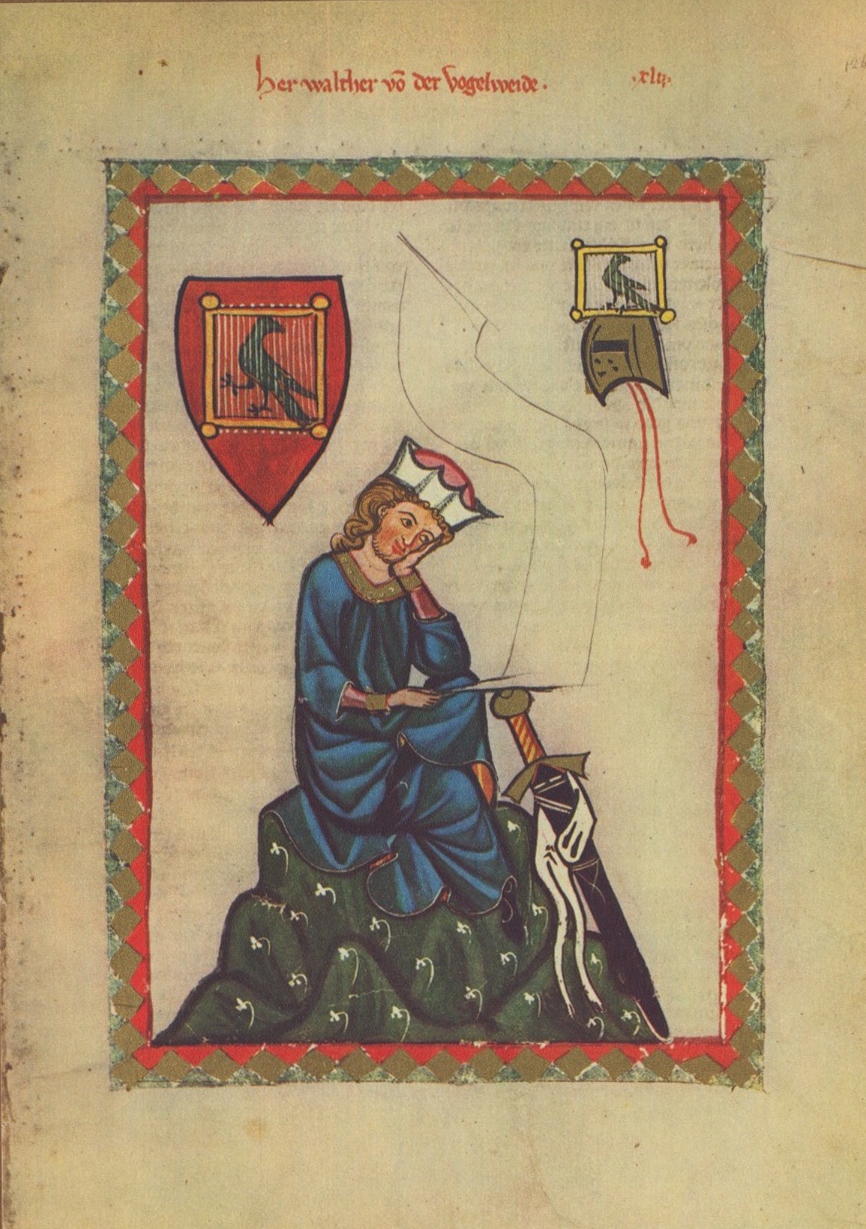 her walther võ der Vogelweide. .xlii.